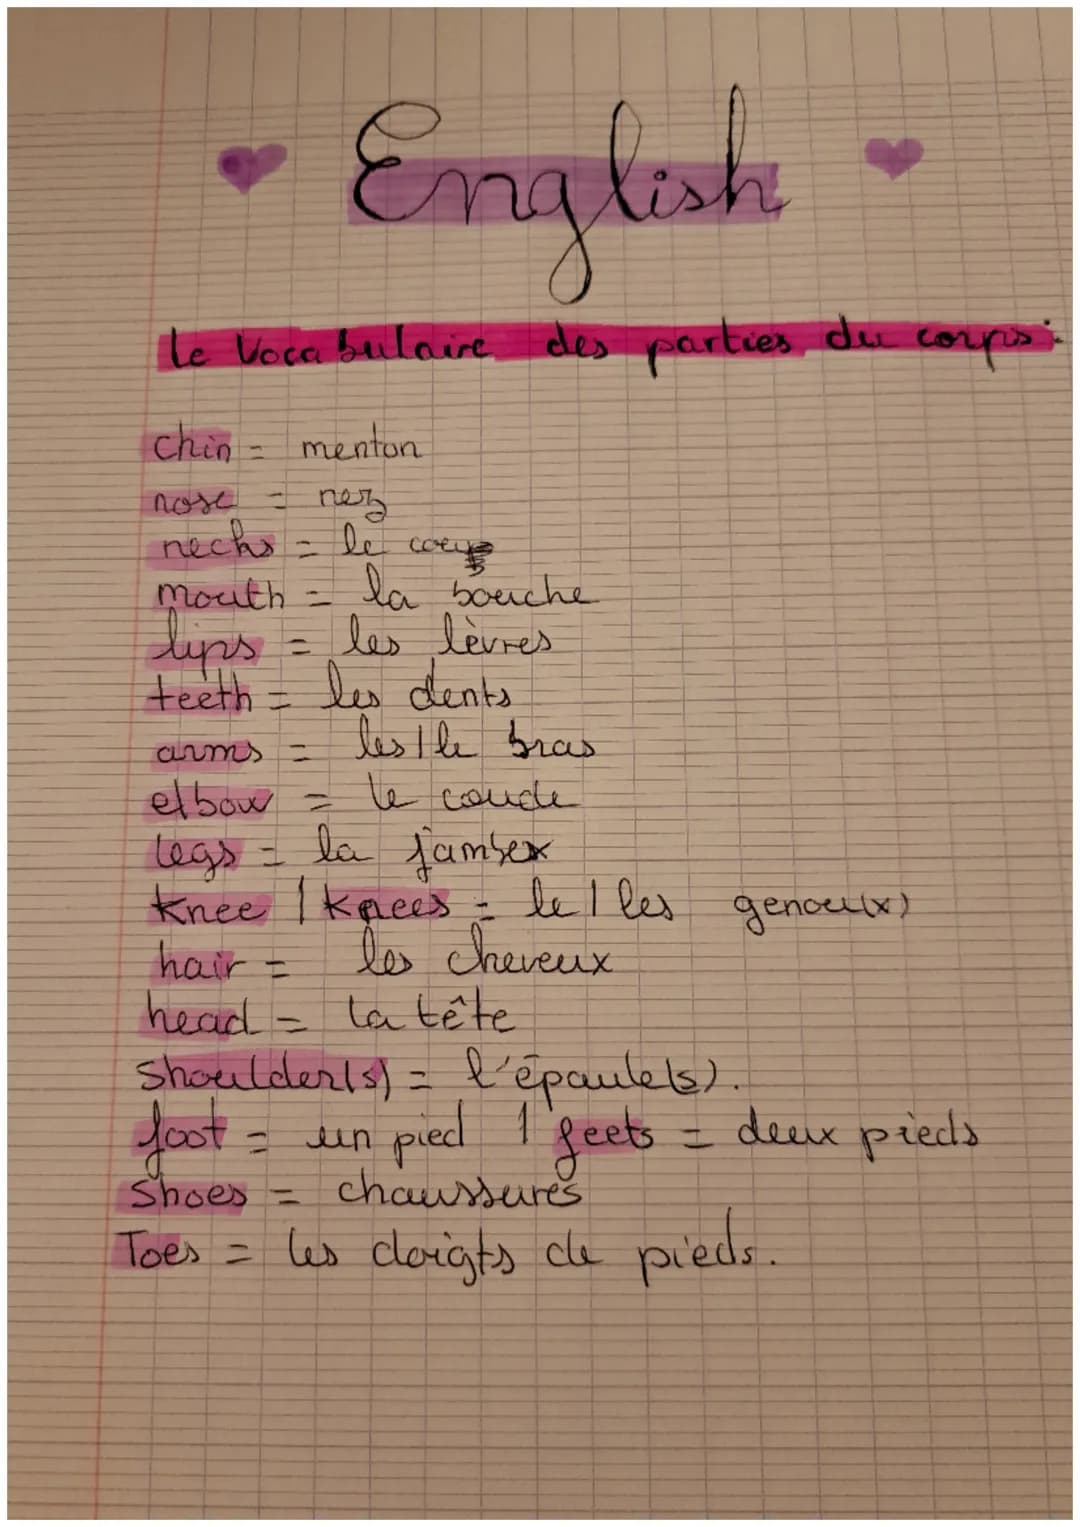 English
le Vocabulaire des parties du corps:
chin = menton
nose = nez
necks = le cou
mouth = la bouche
lips = les lèvres
teeth = les dents
arms = les/le bras
elbow = le coude
legs = la jambe
knee / knees = le/les genou(x)
hair = les cheveux
head = la tête
Shoulder(s) = l'épaule(s).
foot = un pied / feets = deux pieds
Shoes = chaussures
Toes = les doigts de pieds.